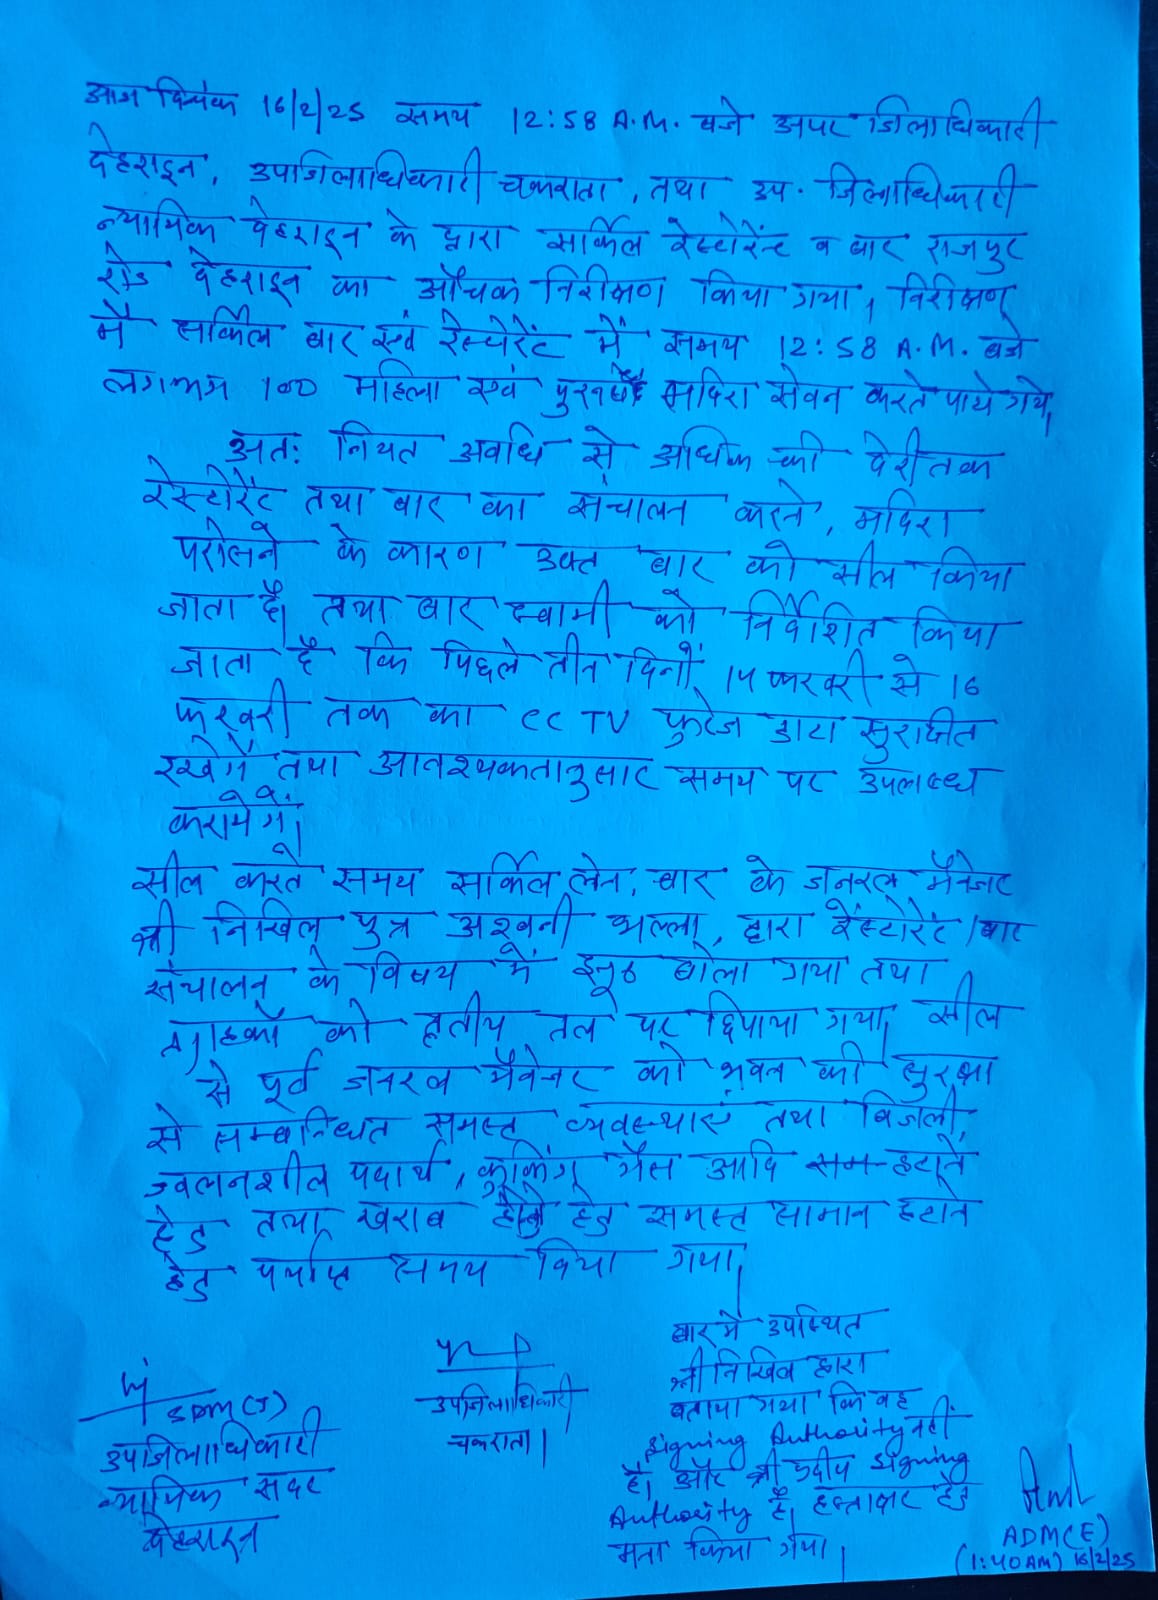 आज दिनांक 16/2/25 समय 12:58 A.M. बजे अपर जिलाधिकारी
देहरादून, उपजिलाधिकारी चकराता, तथा उप. जिलाधिकारी
न्यायिक देहरादून के द्वारा सर्किल रेस्टोरेंन्ट व बार राजपुर
रोड देहरादून का औचक निरीक्षण किया गया, निरीक्षण
में सर्किल बार एवं रेस्टोरेंट में समय 12:58 A.M. बजे
लगभग 100 महिला एवं पुरूष मदिरा सेवन करते पाये गये,
अत: नियत अवधि से अधिक की देरी तक
रेस्टोरेंट तथा बार का संचालन करने, मदिरा
परोसने के कारण उक्त बार को सील किया
जाता है। तथा बार स्वामी को निर्देशित किया
जाता है कि पिछले तीन दिनों, 14 फरवरी से 16
फरवरी तक का CCTV फुटेज डाटा सुरक्षित
रखेगें तथा आवश्यकतानुसार समय पर उपलब्ध
करायेगें।
सील करते समय सर्किल बार के जनरल मैनेजर
श्री निखिल पुत्र अश्वनी भल्ला, द्वारा रेंस्टोरेंट/बार
संचालन के विषय में झूठ बोला गया तथा
ग्राहकों को तृतीय तल पर छिपाया गया, सील
से पूर्व जनरल मैनेजर को भवन की सुरक्षा
से सम्बन्धित समस्त व्यवस्थाएं तथा बिजली,
ज्वलनशील पदार्थ, कुकिंग गैस आदि हटाने
हेतु तथा खराब होने हेतु समस्त सामान हटाने
हेतु पर्याप्त समय दिया गया,
बार में उपस्थित
श्री निखिल द्वारा
बताया गया कि वह
Signing Authority नहीं
है। और श्री प्रदीप Signing
Authority है। हस्ताक्षर हेतु
मना किया गया।
SDM(J)
उपजिलाधिकारी
न्यायिक सदर
देहरादून
उपजिलाधिकारी
चकराता।
ADM(E)
(1:40AM) 16/2/25